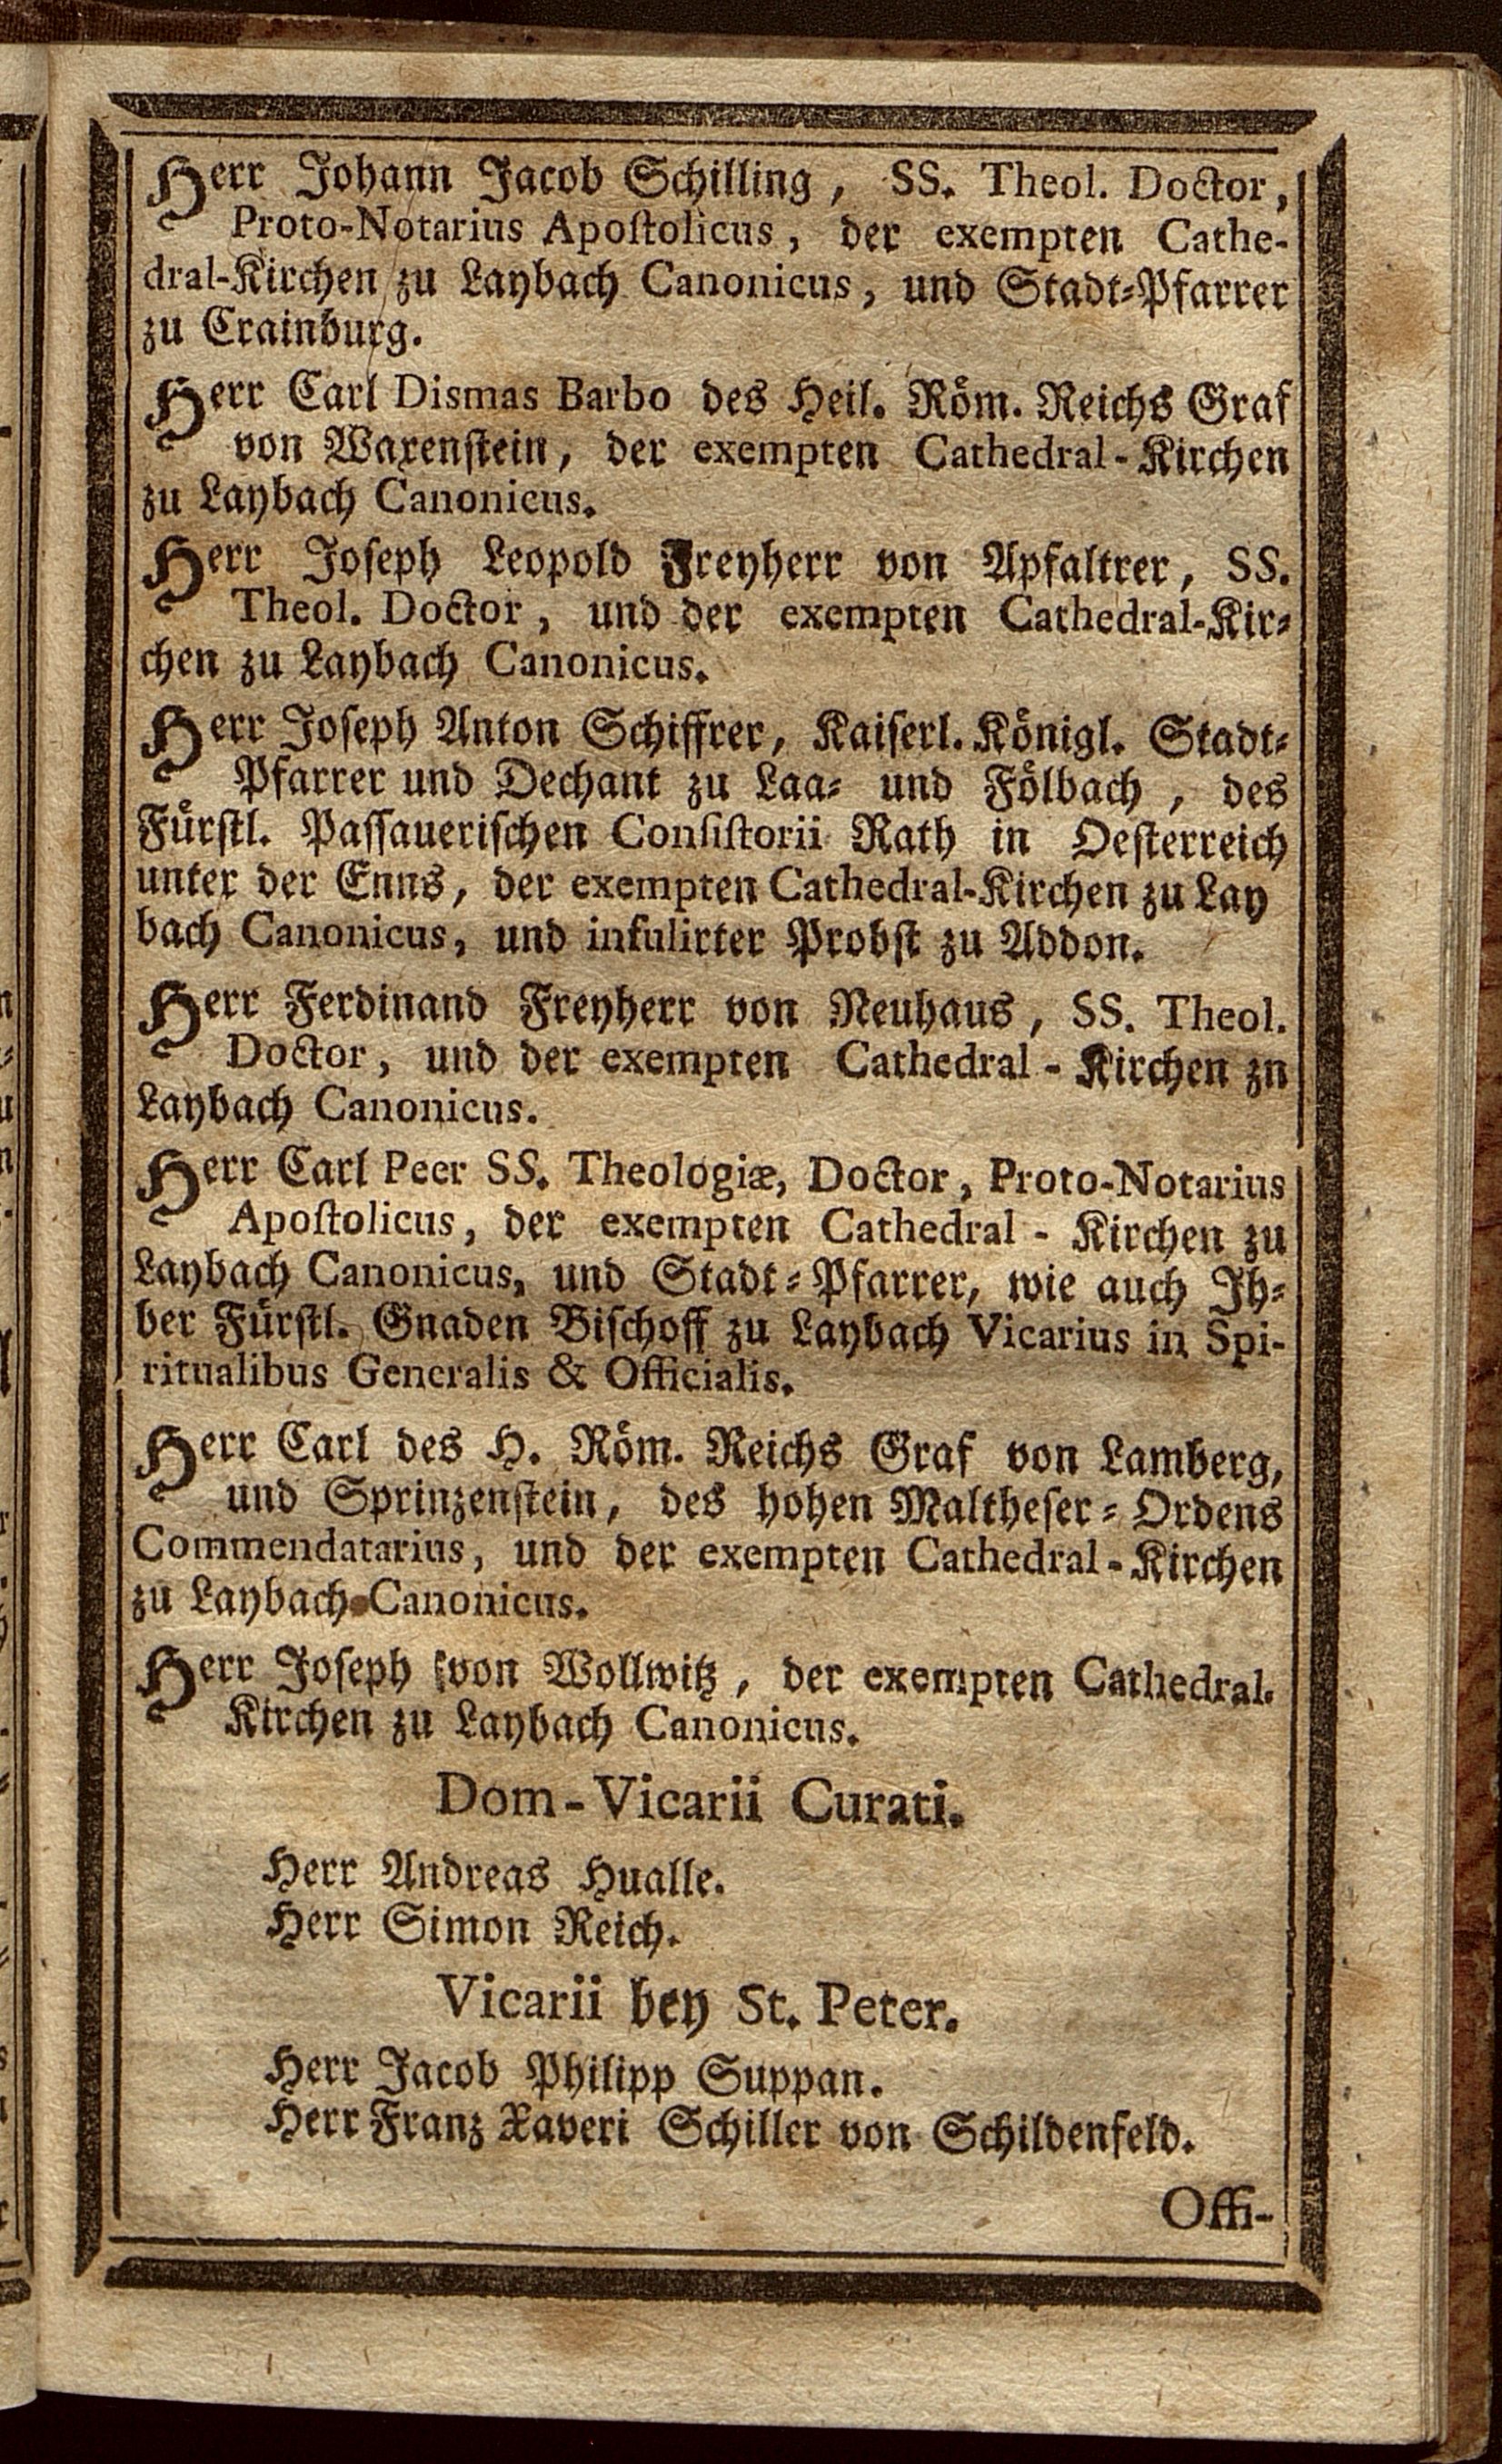 Herr Johann Jacob Schilling, SS. Theol. Doctor,
Proto-Notarius Apostolicus, der exempten Cathe-
dral-Kirchen zu Laybach Canonicus, und Stadt-Pfarrer
zu Crainburg.
Herr Carl Dismas Barbo des Heil. Röm. Reichs Graf
von Waxenstein, der exempten Cathedral-Kirchen
zu Laybach Canonicus.
Herr Joseph Leopold Freyherr von Apfaltrer, SS.
Theol. Doctor, und der exempten Cathedral-Kir-
chen zu Laybach Canonicus.
Herr Joseph Anton Schiffrer, Kaiserl. Königl. Stadt-
Pfarrer und Dechant zu Laa- und Fölbach, des
Fürstl. Passauerischen Consistorii Rath in Oesterreich
unter der Enns, der exempten Cathedral-Kirchen zu Lay
bach Canonicus, und infulirter Probst zu Addon.
Herr Ferdinand Freyherr von Neuhaus, SS. Theol.
Doctor, und der exempten Cathedral-Kirchen zu
Laybach Canonicus.
Herr Carl Peer SS. Theologiæ, Doctor, Proto-Notarius
Apostolicus, der exempten Cathedral-Kirchen zu
Laybach Canonicus, und Stadt-Pfarrer, wie auch Ih-
ber Fürstl. Gnaden Bischoff zu Laybach Vicarius in Spi-
ritualibus Generalis & Officialis.
Herr Carl des H. Röm. Reichs Graf von Lamberg,
und Sprinzenstein, des hohen Maltheser-Ordens
Commendatarius, und der exempten Cathedral-Kirchen
zu Laybach Canonicus.
Herr Joseph von Wollwitz, der exempten Cathedral.
Kirchen zu Laybach Canonicus.
Dom-Vicarii Curati.
Herr Andreas Hualle.
Herr Simon Reich.
Vicarii bey St. Peter.
Herr Jacob Philipp Suppan.
Herr Franz Xaveri Schiller von Schildenfeld.
Offi-